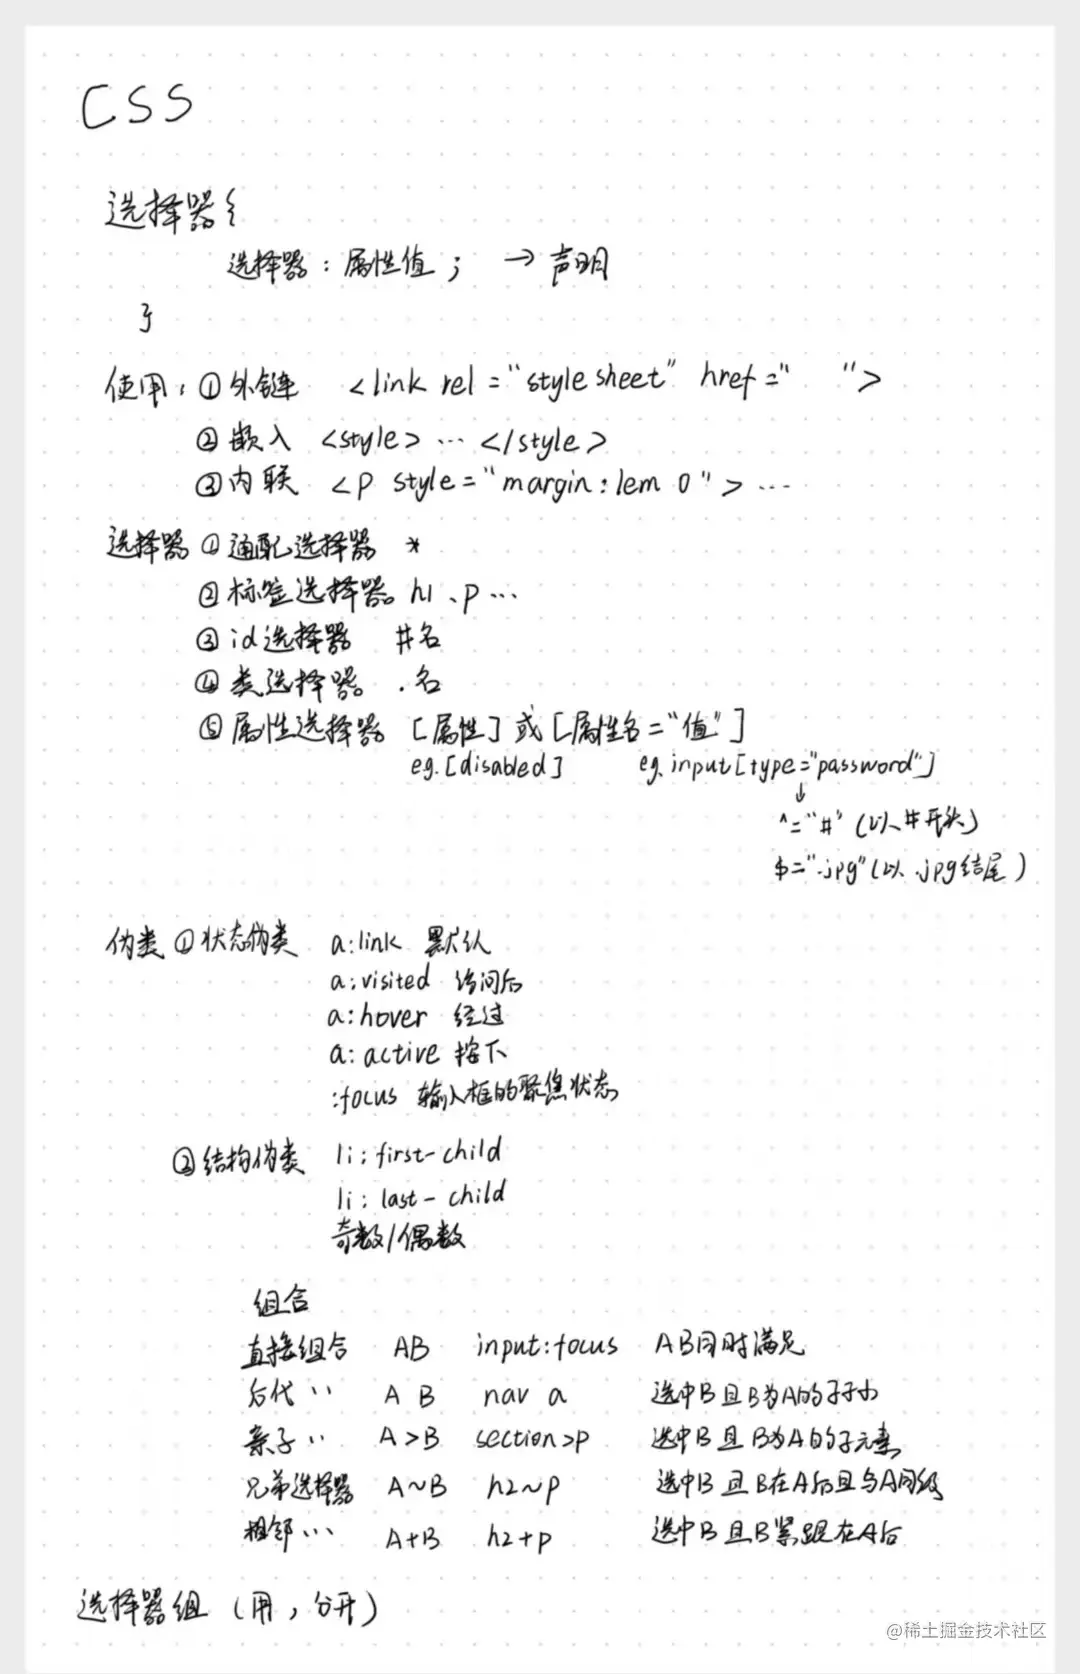 CSS
选择器{
选择器:属性值; → 声明
}
使用:①外链 <link rel="stylesheet" href=" ">
②嵌入 <style> … </style>
③内联 <p style="margin:1em 0"> …
选择器①通配选择器 *
②标签选择器 h1、p…
③id选择器 #名
④类选择器 .名
⑤属性选择器 [属性]或[属性名="值"]
eg.[disabled] eg.input[type="password"]
↓
^="#"(以#开头)
$=".jpg"(以.jpg结尾)
伪类①状态伪类 a:link 默认
a:visited 访问后
a:hover 经过
a:active 按下
:focus 输入框的聚焦状态
②结构伪类 li:first-child
li:last-child
奇数/偶数
组合
直接组合 AB input:focus AB同时满足
后代 ‵‵ A B nav a 选中B且B为A的子子孙
亲子 ‵‵ A>B section>p 选中B且B为A的子元素
兄弟选择器 A~B h2~p 选中B且B在A后且与A同级
相邻… A+B h2+p 选中B且B紧跟在A后
选择器组(用,分开)
@稀土掘金技术社区